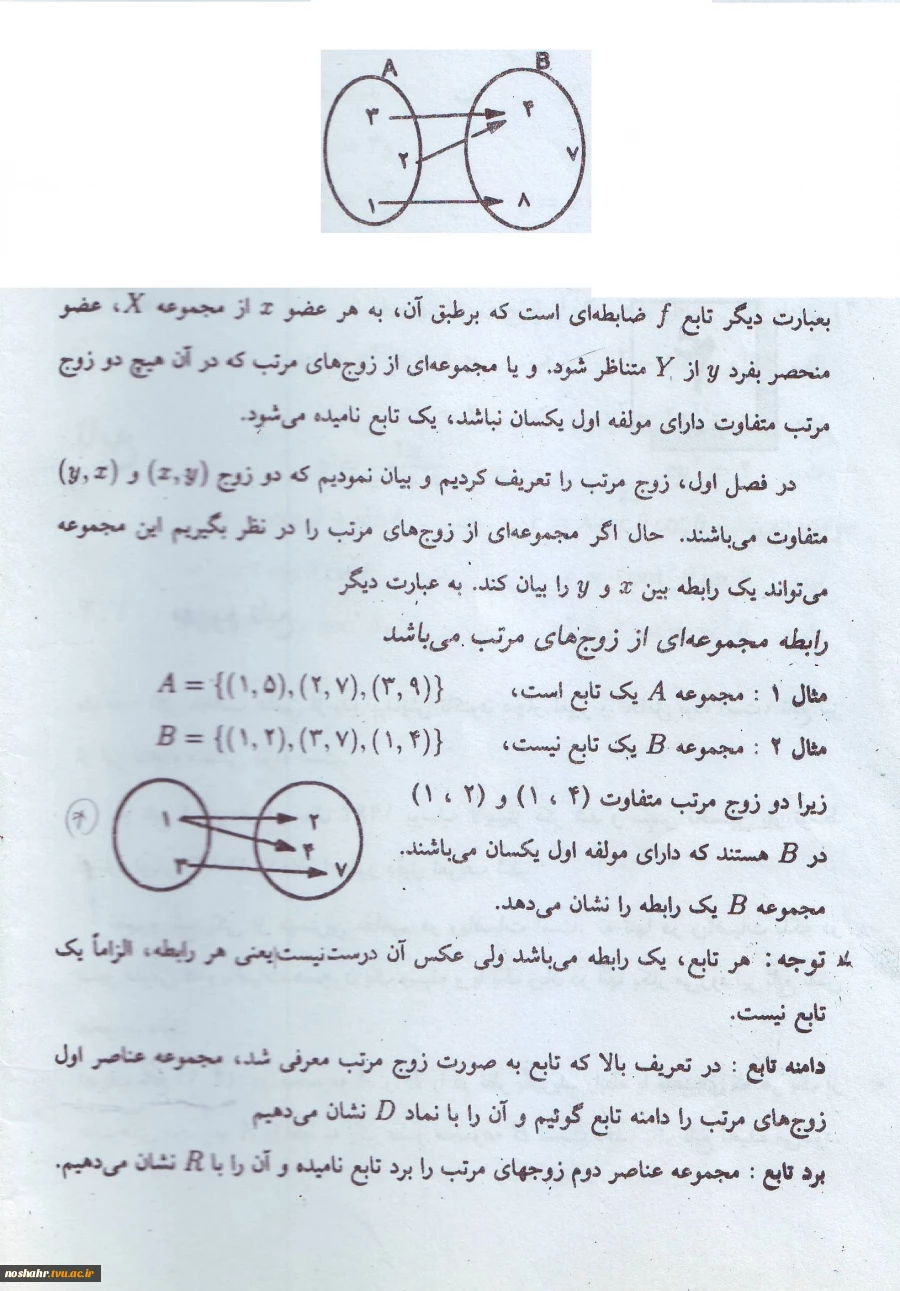 A B
۳ ۴
۲ ۷
۱ ۸
بعبارت دیگر تابع f ضابطه‌ای است که برطبق آن، به هر عضو x از مجموعه X، عضو
منحصر بفرد y از Y متناظر شود. و یا مجموعه‌ای از زوج‌های مرتب که در آن هیچ دو زوج
مرتب متفاوت دارای مولفه اول یکسان نباشد، یک تابع نامیده می‌شود.
در فصل اول، زوج مرتب را تعریف کردیم و بیان نمودیم که دو زوج (x,y) و (y,x)
متفاوت می‌باشند. حال اگر مجموعه‌ای از زوج‌های مرتب را در نظر بگیریم این مجموعه
می‌تواند یک رابطه بین x و y را بیان کند. به عبارت دیگر
رابطه مجموعه‌ای از زوج‌های مرتب می‌باشد
مثال ۱ : مجموعه A یک تابع است، A = {(۱,۵),(۲,۷),(۳,۹)}
مثال ۲ : مجموعه B یک تابع نیست، B = {(۱,۲),(۳,۷),(۱,۴)}
زیرا دو زوج مرتب متفاوت (۱ ، ۴) و (۱ ، ۲)
در B هستند که دارای مولفه اول یکسان می‌باشند.
مجموعه B یک رابطه را نشان می‌دهد.
۱ ۲
۴
۳ ۷
توجه : هر تابع، یک رابطه می‌باشد ولی عکس آن درست‌نیست یعنی هر رابطه، الزاماً یک
تابع نیست.
دامنه تابع : در تعریف بالا که تابع به صورت زوج مرتب معرفی شد، مجموعه عناصر اول
زوج‌های مرتب را دامنه تابع گوئیم و آن را با نماد D نشان می‌دهیم
برد تابع : مجموعه عناصر دوم زوجهای مرتب را برد تابع نامیده و آن را با R نشان می‌دهیم.
noshahr.tvu.ac.ir